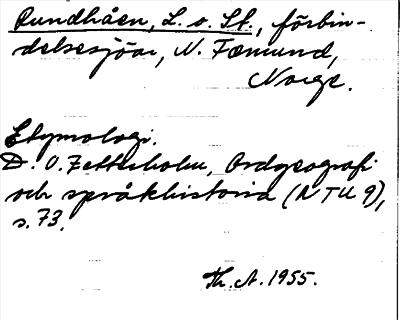 Rundhåen, L. o. St., förbin-
delsesjöar, N. Fæmund,
Norge.
Etymologi.
D. O. Zetterholm, Ordgeografi
och språkhistoria (NTU 9),
s. 73.
Th. A. 1955.